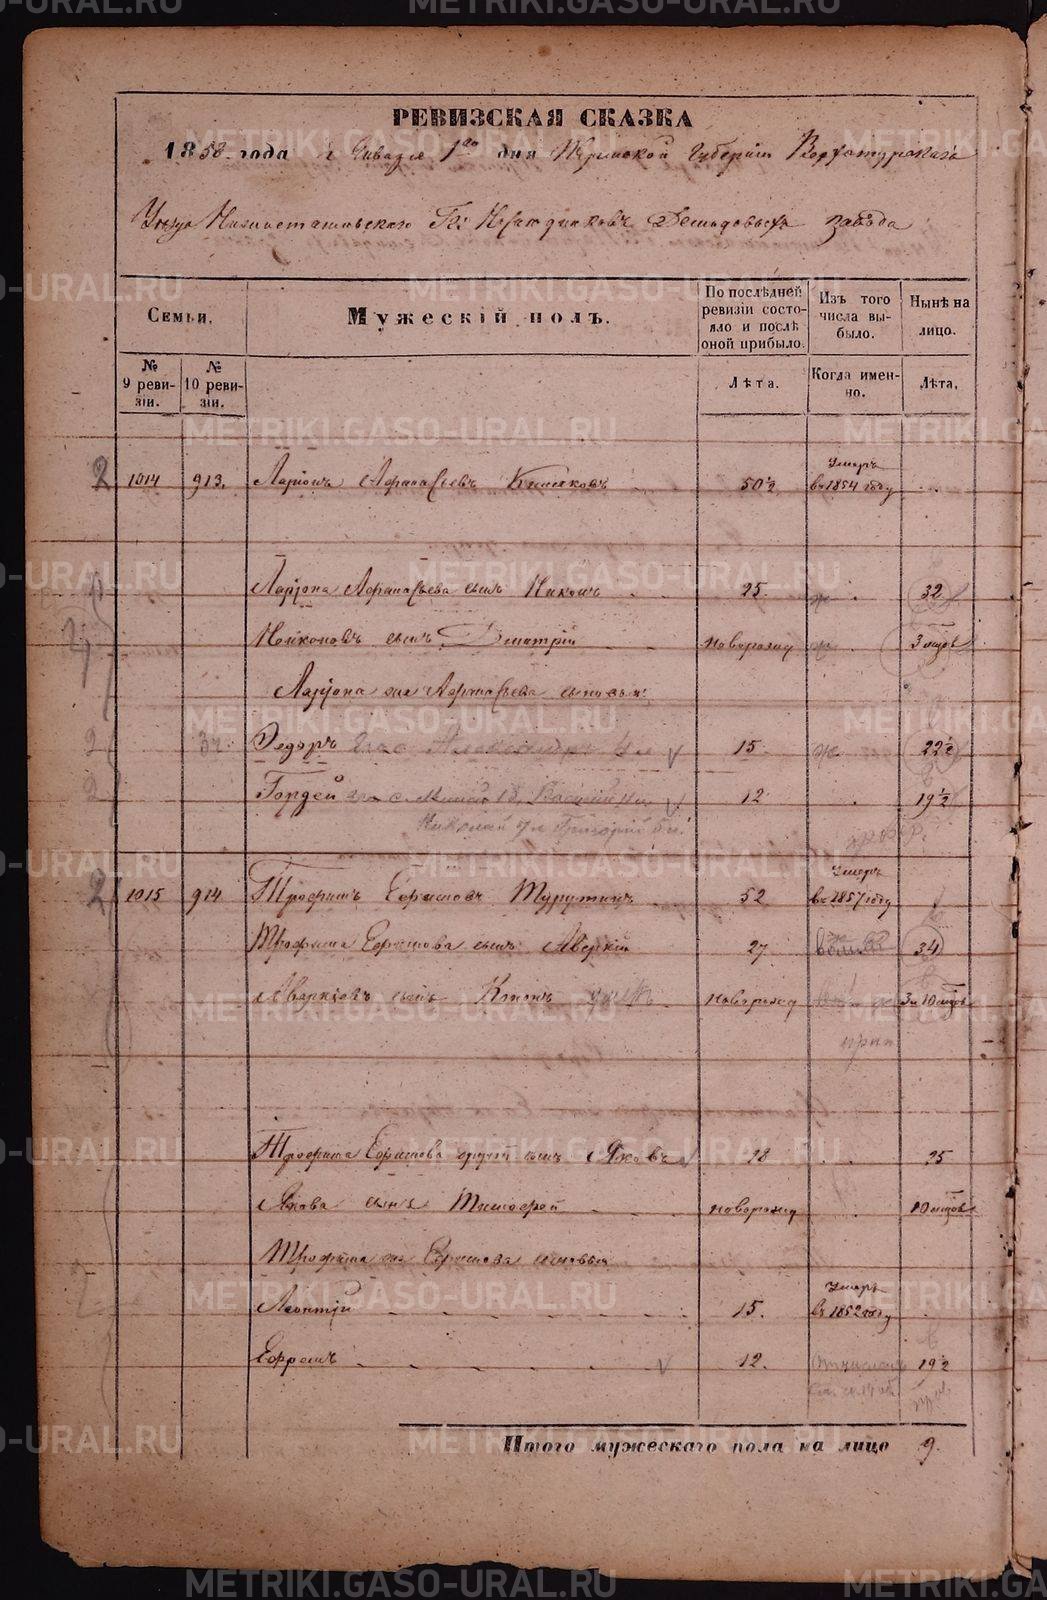 РЕВИЗСКАЯ СКАЗКА
1858 года Января 1го дня Пермской Губернiи Верхотурскаго
Уѣзда Нижнетагильскаго Гг: Наслѣдниковъ Демидовыхъ завода
Семьи.
Мужескiй полъ.
По послѣдней ревизiи состояло и послѣ оной прибыло.
Изъ того числа выбыло.
Нынѣ на лицо.
№ 9 ревизiи.
№ 10 ревизiи.
Лѣта.
Когда именно.
Лѣта.
2 1014 913. Ларiонъ Афанасьевъ 50½ Умеръ въ 1854 году
Ларiона Афанасьева сынъ Никонъ 25 32
Никоновъ сынъ Дмитрiй новорожд 3 мцов
Ларiона Афанасьева сыновья:
Федоръ Александръ 15. 22½
Гордей Василiй 12 19½
Николай Григорiй
2 1015 914 Трофимъ Ефимовъ 52 Умеръ въ 1857 году
Трофима Ефимова сынъ Аверкiй 27 34
Аверкiевъ сынъ Кононъ новорожд 3 и 10 мцов
Трофима Ефимова другой сынъ Яковъ 18 25
Якова сынъ Тимофей новорожд 10 мцов
Трофима Ефимова сыновья
Леонтiй 15. Умеръ въ 1852 году
Ефремъ 12. 19½
Итого мужескаго пола на лицо 9.
METRIKI.GASO-URAL.RU